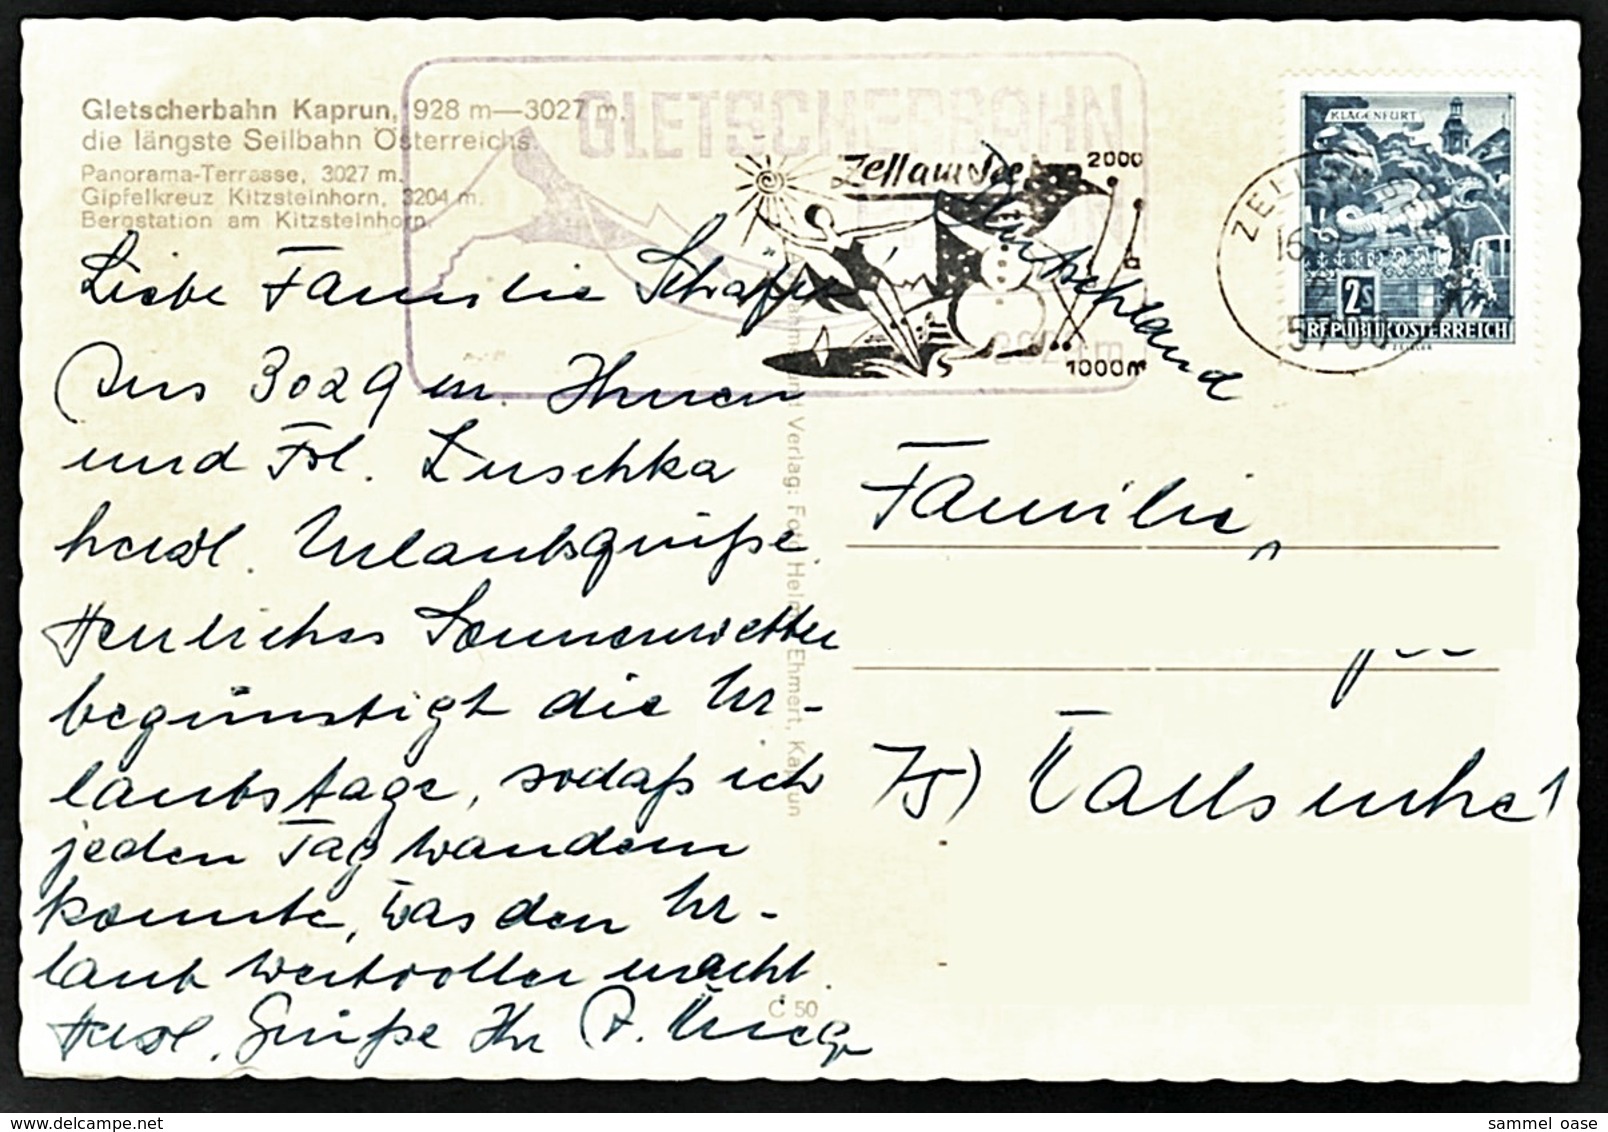 Gletscherbahn Kaprun, 928 m—3027 m.
die längste Seilbahn Österreichs.
Panorama-Terrasse, 3027 m.
Gipfelkreuz Kitzsteinhorn, 3204 m.
Bergstation am Kitzsteinhorn.
GLETSCHERBAHN
Zell am See
2000
1000m
KLAGENFURT
2S
REPUBLIK ÖSTERREICH
ZELL AM
5700
Deutschland
Liebe Familie Schäfer!
Aus 3029 m. Ihnen
und Frl. Luschka
herzl. Urlaubsgrüße.
Herrliches Sonnenwetter
begünstigt die Ur-
laubstage, sodaß ich
jeden Tag wandern
konnte, was den Ur-
laub wertvoller macht.
Herzl. Grüße Ihr
Verlag: Foto Helmut Ehmert, Kaprun
C 50
Familie
75)
sammel oase